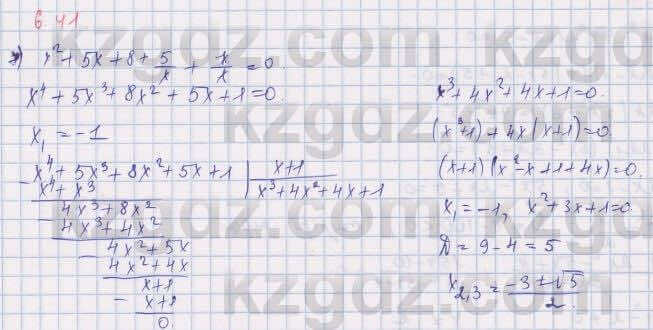 6.41
x² + 5x + 8 + 5/x + x/x = 0.
x⁴ + 5x³ + 8x² + 5x + 1 = 0.
x₁ = -1
x⁴ + 5x³ + 8x² + 5x + 1 | x+1
- x⁴ + x³ | x³ + 4x² + 4x + 1
4x³ + 8x²
- 4x³ + 4x²
4x² + 5x
- 4x² + 4x
x + 1
- x + 1
0.
x³ + 4x² + 4x + 1 = 0.
(x³+1) + 4x(x+1) = 0
(x+1)(x² - x + 1 + 4x) = 0.
x₁ = -1, x² + 3x + 1 = 0
D = 9 - 4 = 5
x₂,₃ = (-3 ± √5)/2
kzgdz.com